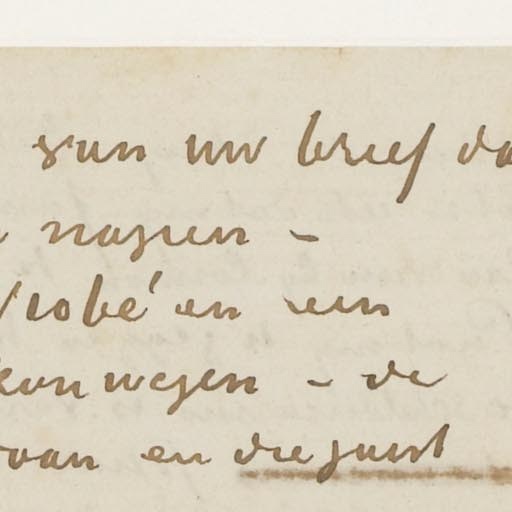 van uw brief da
nazien –
robé en een
kan wegen – de
van en die juist